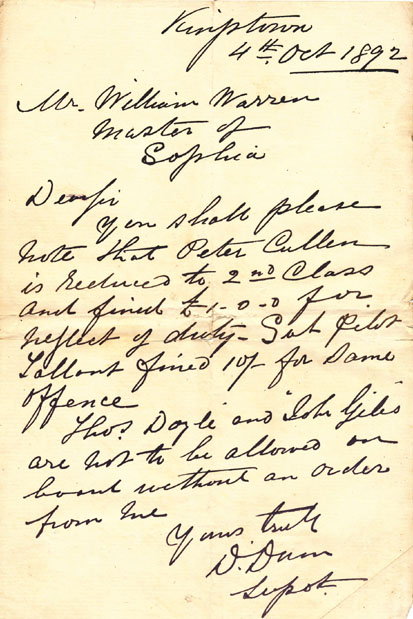 Kingstown
4th Oct 1892
Mr. William Warren
Master of
Sophia
Dear Sir
You shall please
note that Peter Cullen
is reduced to 2nd Class
and fined £1-0-0 for
neglect of duty - Pilot
Tallant fined 10/- for Same
offence
Thos. Doyle and John Giles
are not to be allowed on
board without an order
from me
Yours truly
D. Dunn
Supt.